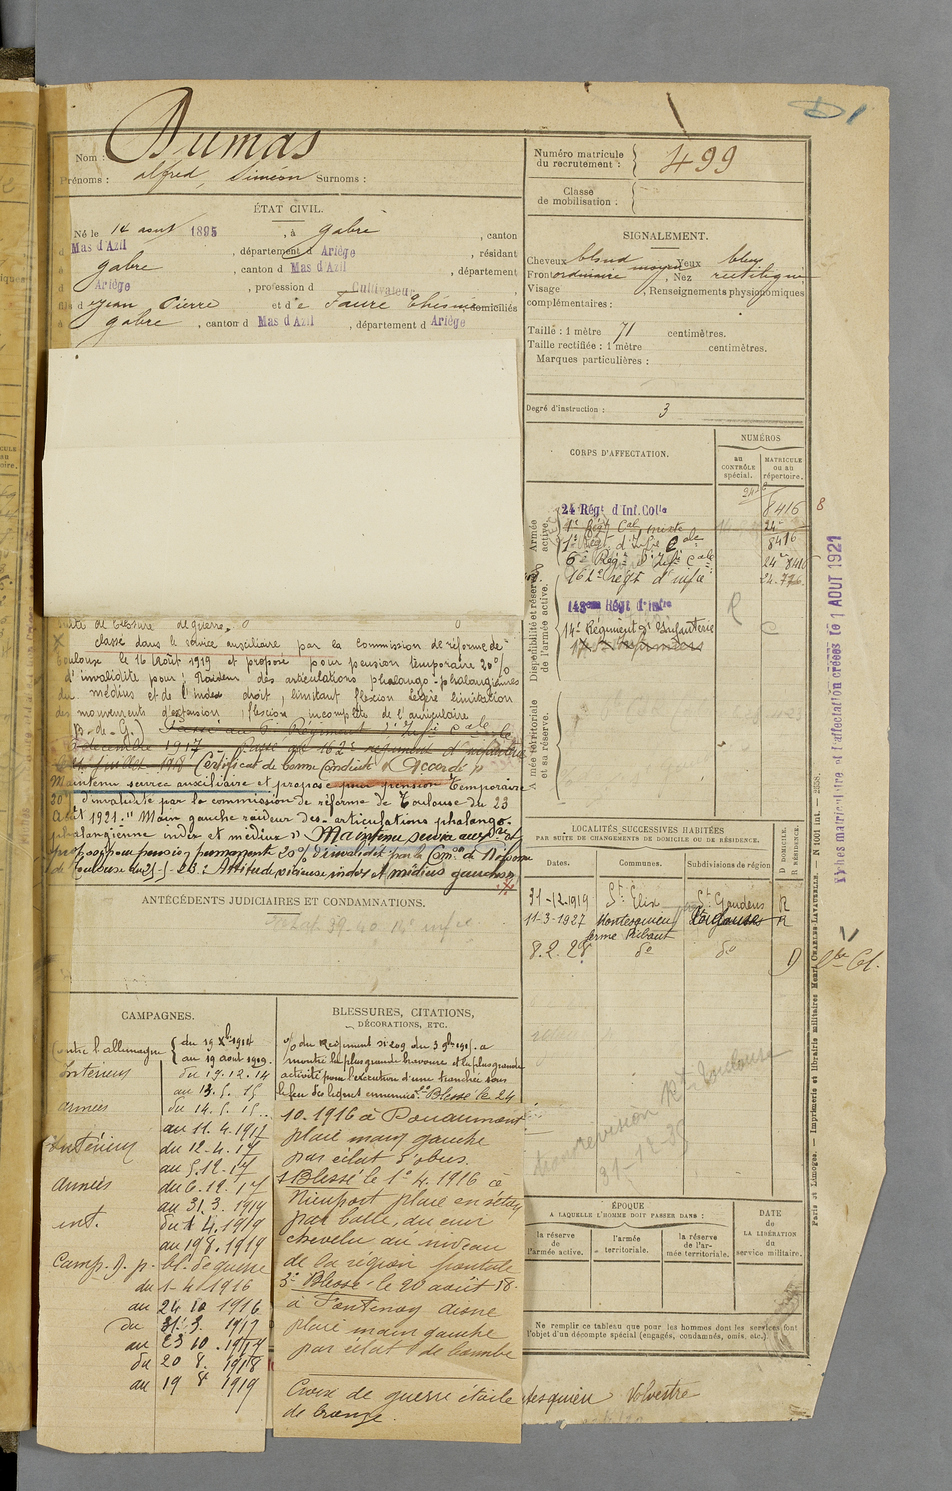 D1
Nom : Dumas
Prénoms : Alfred, Siméon Surnoms :
ÉTAT CIVIL.
Né le 14 août 1895, à Gabre, canton
d Mas d'Azil, département d Ariège, résidant
à Gabre, canton d Mas d'Azil, département
d Ariège, profession d Cultivateur
fils d Jean Pierre et de Faure, domiciliés
à Gabre, canton d Mas d'Azil, département d Ariège
Numéro matricule du recrutement : 499
Classe de mobilisation :
SIGNALEMENT.
Cheveux blond Yeux bleu
Front ordinaire moyen, Nez rectiligne
Visage, Renseignements physionomiques
complémentaires :
Taille : 1 mètre 71 centimètres.
Taille rectifiée : 1 mètre centimètres.
Marques particulières :
Degré d'instruction : 3
CORPS D'AFFECTATION.
NUMÉROS
au CONTRÔLE spécial.
MATRICULE ou au répertoire.
Armée active.
24 Régt d'Inf. Colle 8416
1e Régt Cal mixte 24
1e Régt d'Infie Cale 8416
6e Régt d'Infie Cale 24 8416
162e régt d'infie
Disponibilité et réserve de l'armée active.
143eme Régt d'Infie
14e Régiment d'Infanterie
Armée territoriale et sa réserve.
8
Fiches matriculaire et d'affectation créées le 1 AOUT 1921
de blessure de guerre.
Classé dans le service auxiliaire par la commission de réforme de
Toulouse le 16 Août 1919 et proposé pour pension temporaire 20%
d'invalidité pour : Raideur des articulations phalango-phalangiennes
du médius et de l'index droit, limitant flexion légère limitation
des mouvements d'extension, flexion incomplète de l'auriculaire
p-de-G. Passé au 6e Régiment d'Infie Cale le
5 décembre 1917 Passé au 162e régiment d'infanterie
Certificat de bonne Conduite "Accordé"
Maintenu service auxiliaire et proposé pour pension temporaire
20% d'invalidité par la commission de réforme de Toulouse du 23
Août 1921. "Main gauche raideur des articulations phalango-
phalangienne index et médius". Maintenu service auxre et
proposé pour pension permanente 20% d'invalidité par la Comon de Réforme
de Toulouse du : Attitude vicieuse index et médius gauches
ANTÉCÉDENTS JUDICIAIRES ET CONDAMNATIONS.
LOCALITÉS SUCCESSIVES HABITÉES
PAR SUITE DE CHANGEMENTS DE DOMICILE OU DE RÉSIDENCE.
Dates. Communes. Subdivisions de région
D DOMICILE. R RÉSIDENCE.
31-12-1919 St Élix St Gaudens R
11-3-1927 Montesquieu R
ferme Ribaut
8.2.28 do do D
CAMPAGNES.
Contre l'allemagne du 19 Xbre 1914
au 19 août 1919.
Intérieur du 19.12.14
au 13.5.15
armées du 14.5.15
au 11.4.1917
Intérieur du 12-4-17
au 5.12.17
Armées du 6.12.17
au 31.3.1919
int. du 1 4.1919
au 19 8.1919
Camp. d. p. bl. de guerre
du 1-4 1916
au 24 10 1916
du 31.3. 1917
au 23 10.1917
du 20 8. 1918
au 19 8 1919
BLESSURES, CITATIONS,
DÉCORATIONS, ETC.
O/ du Régiment No 209 du 3 9bre 1915. a
montré la plus grande bravoure et la plus grande
activité pour l'exécution d'une tranchée sous
le feu des lignes ennemies. 2e Blessé le 24
10.1916 à Douaumont
plaie main gauche
par éclat d'obus.
1 Blessé le 1e 4.1916 à
Nieuport plaie en séton
par balle, du cuir
chevelu au niveau
de la région frontale
3e Blessé le 20 août 18.
à Fontenoy aisne
plaie main gauche
par éclat de bombe
Croix de guerre étoile
de bronze.
31-12-38
ÉPOQUE
A LAQUELLE L'HOMME DOIT PASSER DANS :
la réserve de l'armée active.
l'armée territoriale.
la réserve de l'armée territoriale.
DATE de LA LIBÉRATION du service militaire.
Ne remplir ce tableau que pour les hommes dont les services font
l'objet d'un décompte spécial (engagés, condamnés, omis, etc.)
tesquieu Volvestre
Paris et Limoges. — Imprimerie et librairie militaires Henri CHARLES-LAVAUZELLE. — N 1001 int. — 2638.